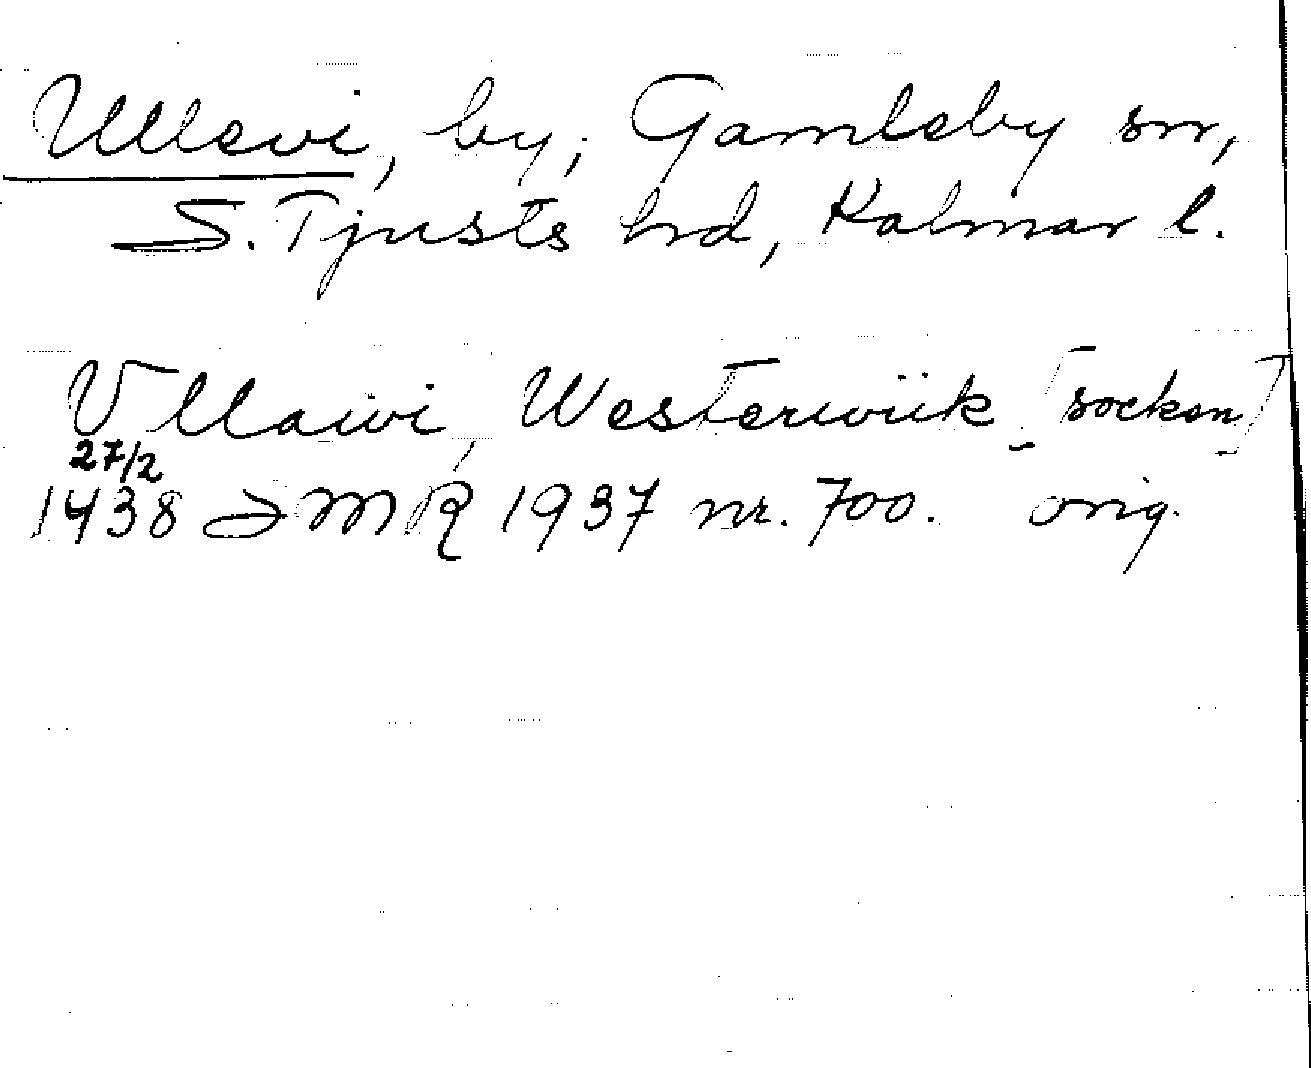 Ullevi, by, Gamleby sn,
S. Tjusts hrd, Kalmar l.
Vllawi, Westerwiik [socken]
27/2
1438 DMR 1937 nr. 700. orig.